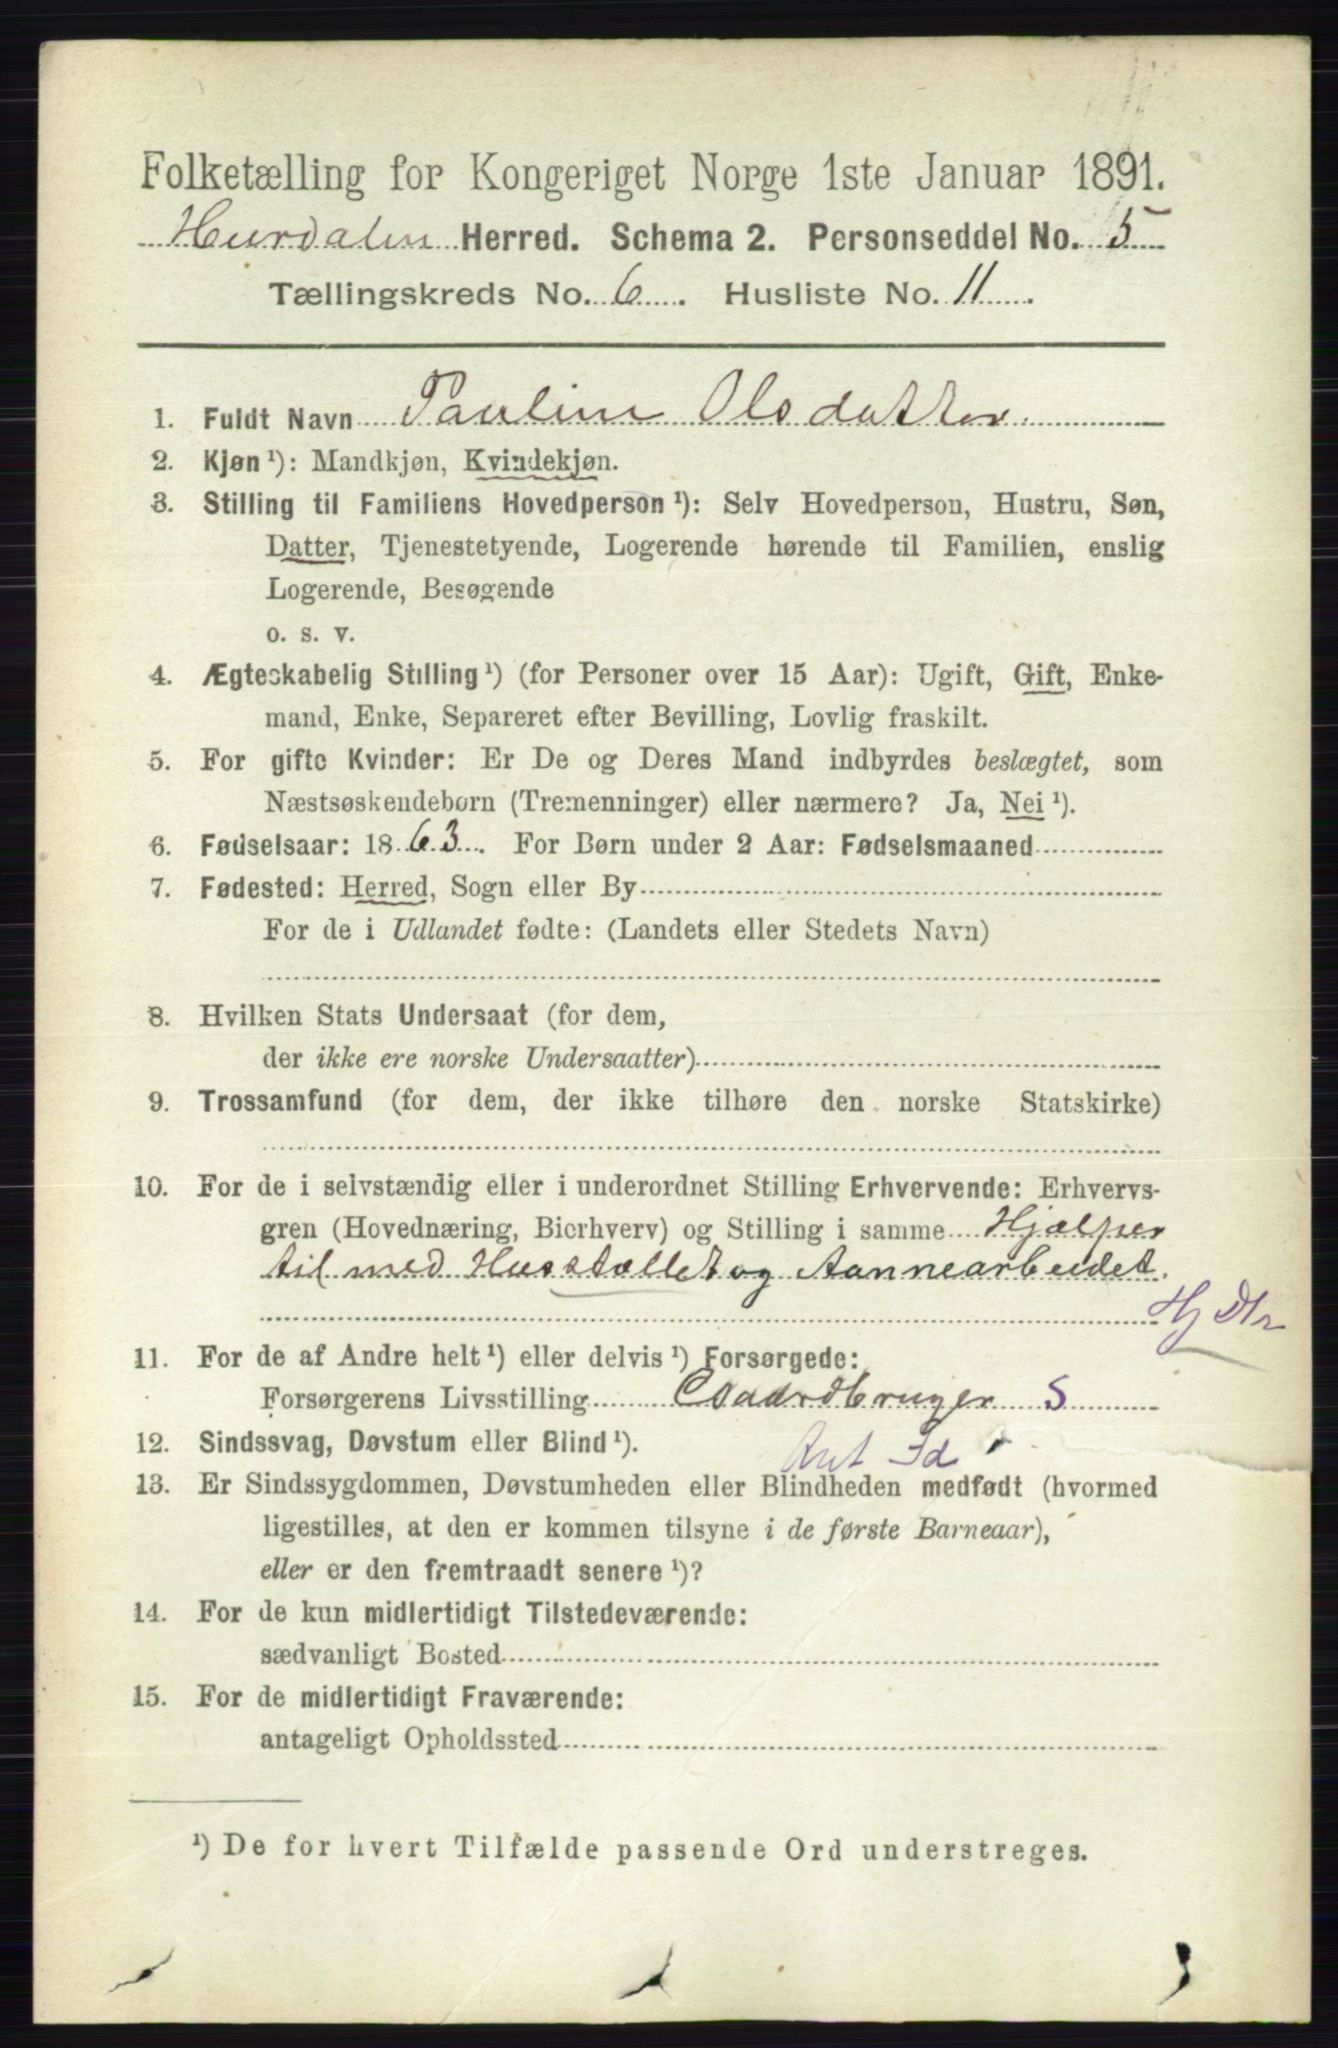 Folketælling for Kongeriget Norge 1ste Januar 1891.
Hurdalen Herred. Schema 2. Personseddel No. 5
Tællingskreds No. 6. Husliste No. 11.
1. Fuldt Navn Pauline Olsdatter
2. Kjøn ¹): Mandkjøn, Kvindekjøn.
3. Stilling til Familiens Hovedperson ¹): Selv Hovedperson, Hustru, Søn,
Datter, Tjenestetyende, Logerende hørende til Familien, enslig
Logerende, Besøgende
o. s. v.
4. Ægteskabelig Stilling ¹) (for Personer over 15 Aar): Ugift, Gift, Enke-
mand, Enke, Separeret efter Bevilling, Lovlig fraskilt.
5. For gifte Kvinder: Er De og Deres Mand indbyrdes beslægtet, som
Næstsøskendebørn (Tremenninger) eller nærmere? Ja, Nei ¹).
6. Fødselsaar: 1863. For Børn under 2 Aar: Fødselsmaaned
7. Fødested: Herred, Sogn eller By
For de i Udlandet fødte: (Landets eller Stedets Navn)
8. Hvilken Stats Undersaat (for dem,
der ikke ere norske Undersaatter)
9. Trossamfund (for dem, der ikke tilhøre den norske Statskirke)
10. For de i selvstændig eller i underordnet Stilling Erhvervende: Erhvervs-
gren (Hovednæring, Bierhverv) og Stilling i samme Hjælper
til med Husstellet og Aannearbeidet.
Hj Dtr
11. For de af Andre helt ¹) eller delvis ¹) Forsørgede:
Forsørgerens Livsstilling Gaardbruger S
12. Sindssvag, Døvstum eller Blind ¹).
13. Er Sindssygdommen, Døvstumheden eller Blindheden medfødt (hvormed
ligestilles, at den er kommen tilsyne i de første Barneaar),
eller er den fremtraadt senere ¹)?
14. For de kun midlertidigt Tilstedeværende:
sædvanligt Bosted
15. For de midlertidigt Fraværende:
antageligt Opholdssted
¹) De for hvert Tilfælde passende Ord understreges.